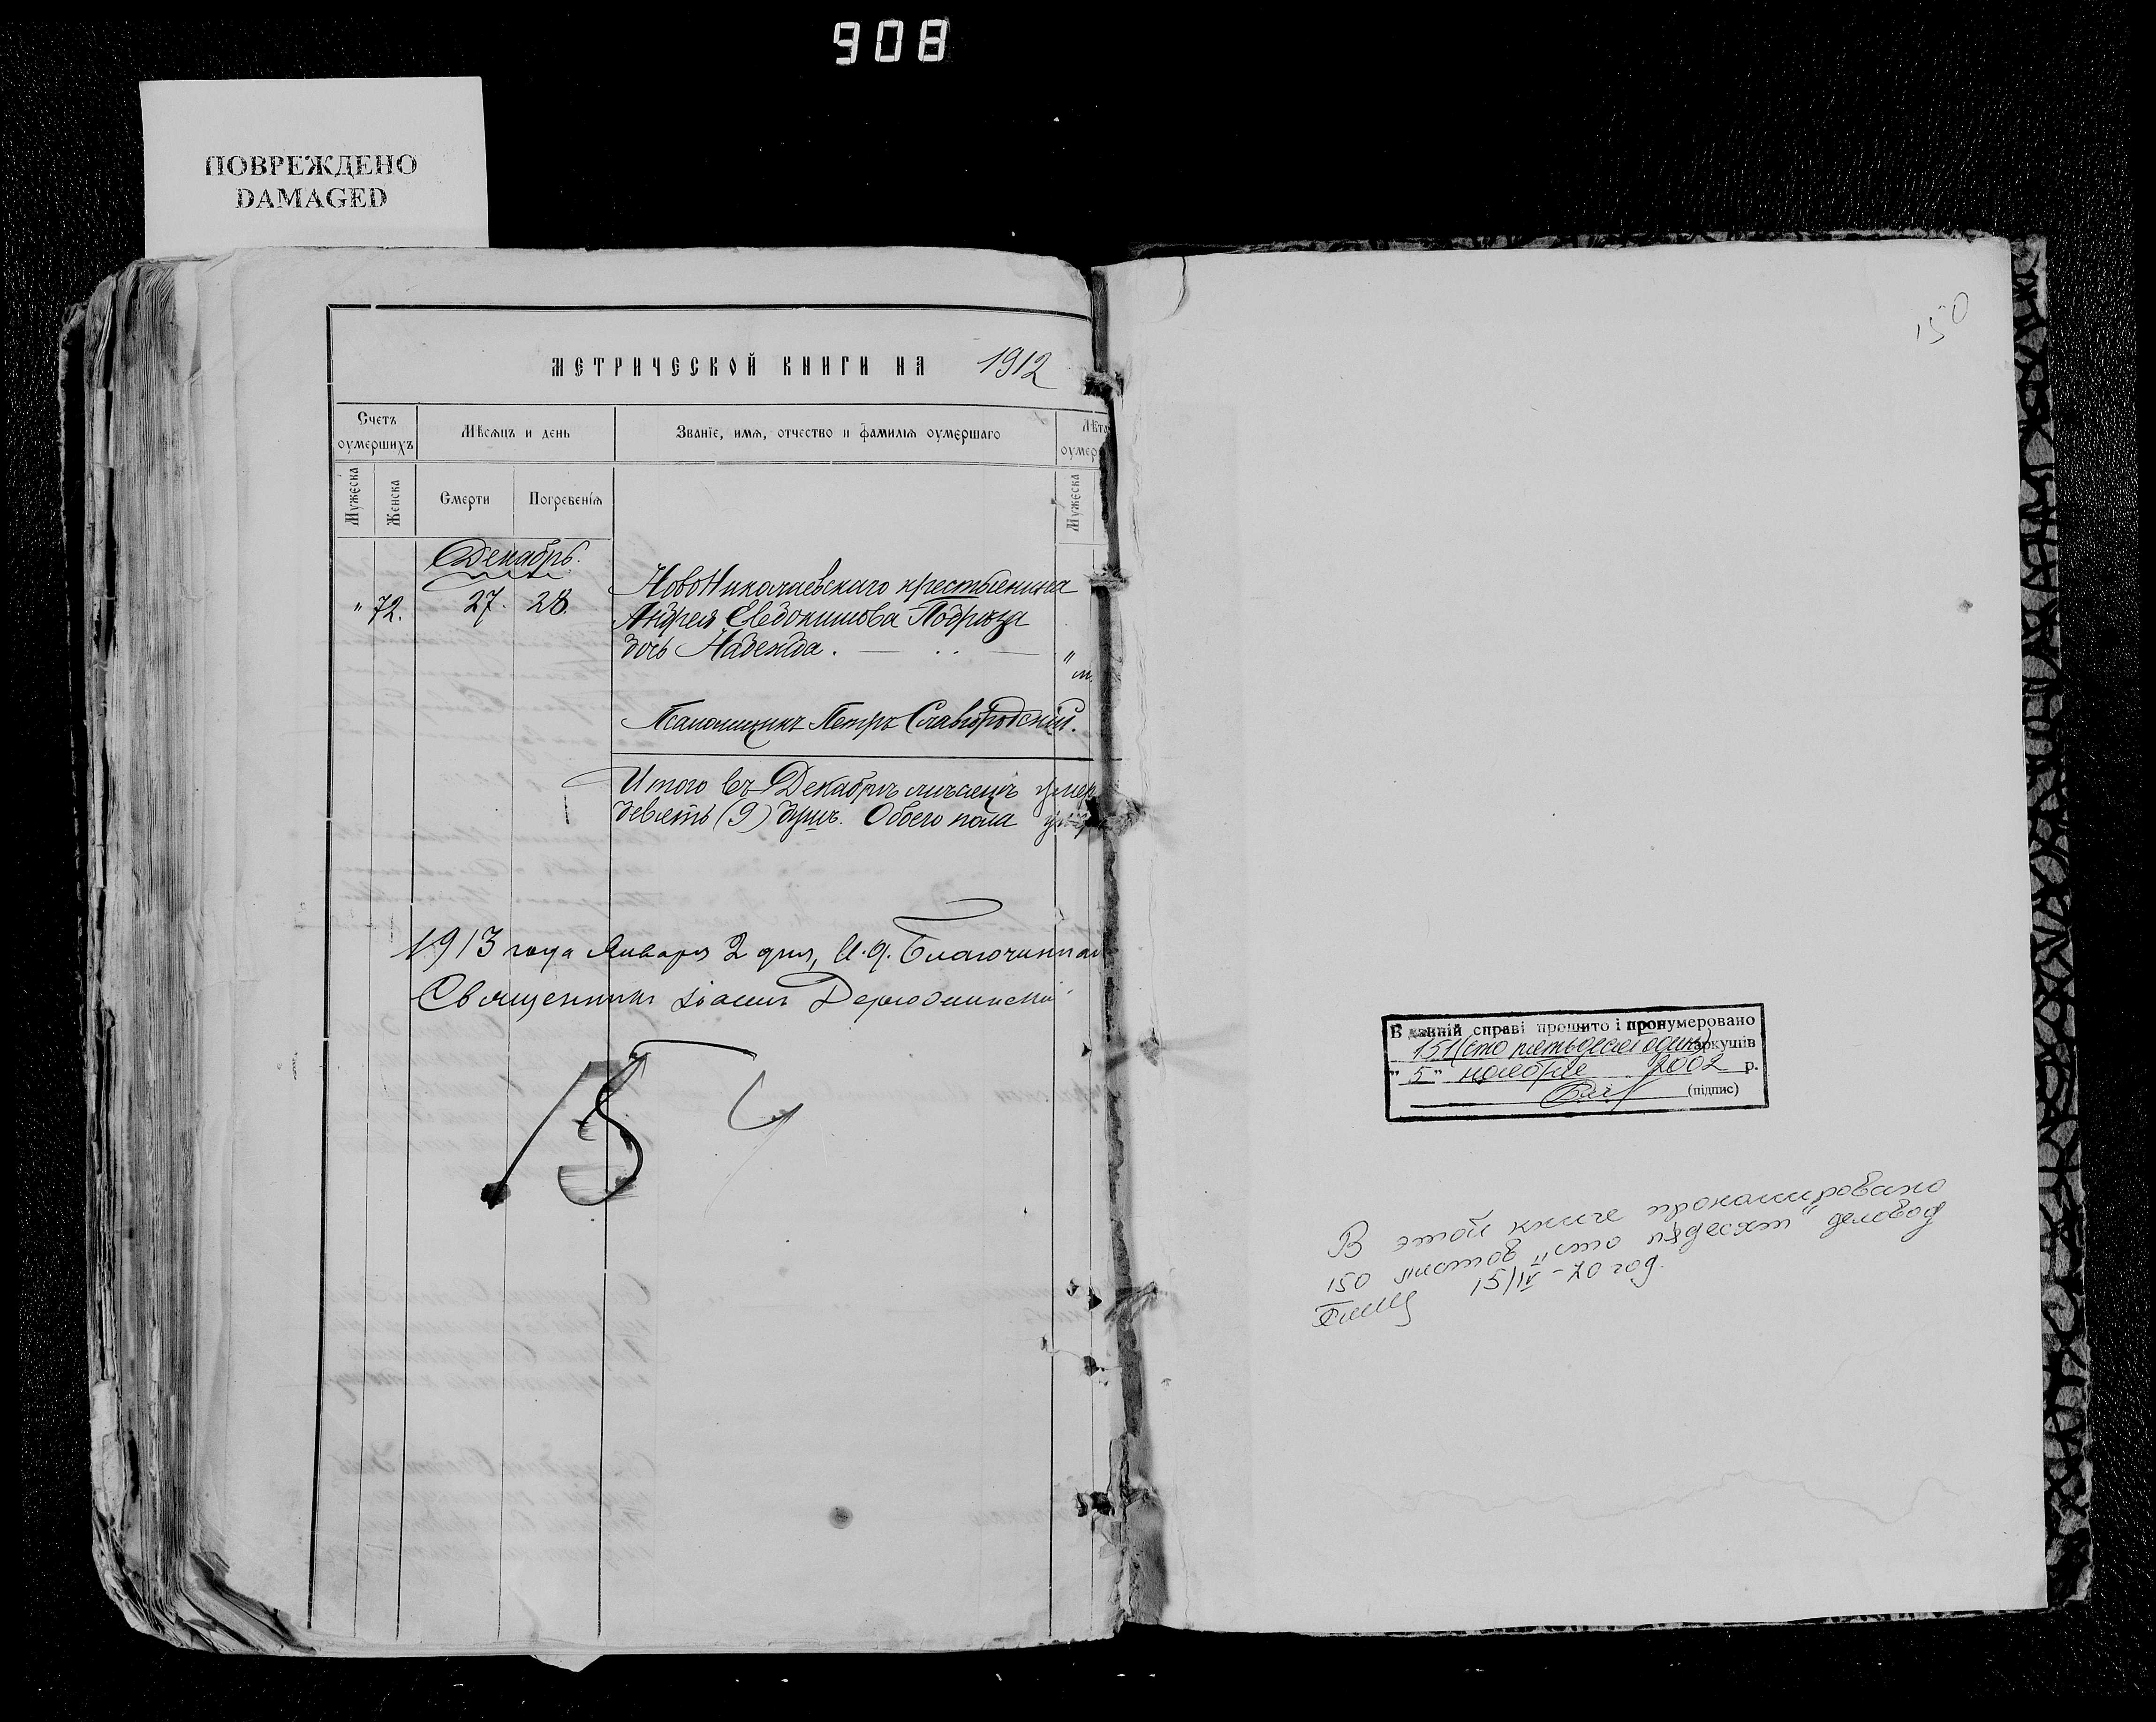 908
ПОВРЕЖДЕНО
DAMAGED
МЕТРИЧЕСКОЙ КНИГИ НА 1912
Счетъ оумершихъ
Мѣсяцъ и день
Званіе, имя, отчество и фамилія оумершаго
Лѣта
оумер
Мужеска
Женска
Смерти
Погребенія
Мужеска
Декабрь.
" 72. 27. 28.
НовоНиколаевскаго крестьянина
Андрея Евдокимова
дочь Надежда.
"
м.
Псаломщикъ Петръ Славгородскій.
Итого въ Декабрѣ мѣсяцѣ умер
девять (9) душъ. Обоего пола
1913 года Января 2 дня, И.д. Благочиннаго
Священникъ Іоаннъ
150
В даній справі прошито і пронумеровано
151 (сто пятьдесят один) аркушів
" 5 " ноября 2002 р.
(підпис)
В этой книге пронумеровано
150 листов "сто пядесят" деловод
15/IV - 70 год.